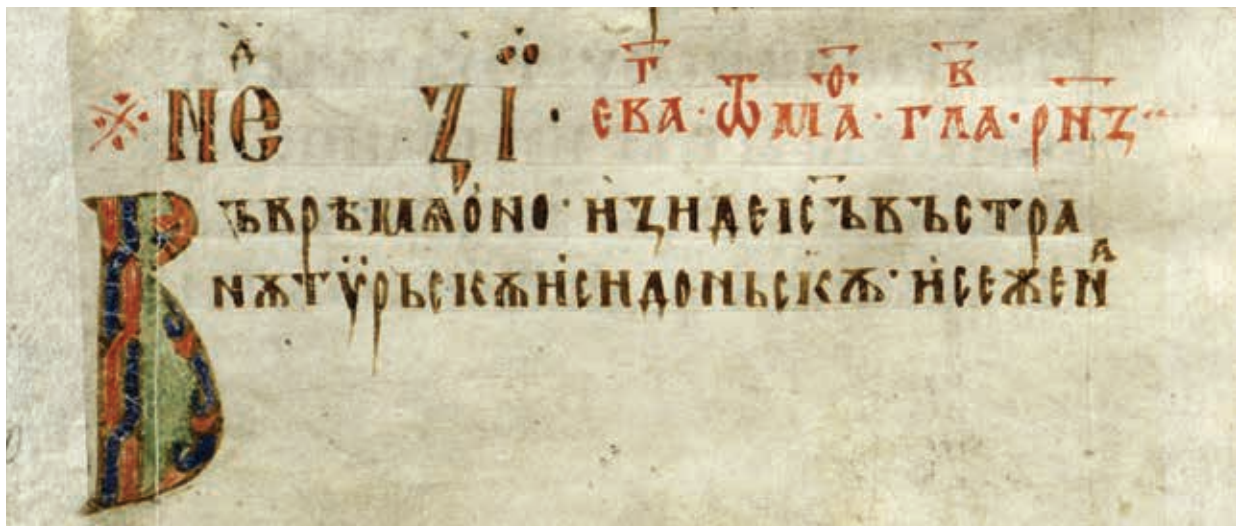 ※ Нед҇ Зі · ева҇г · ѿ ма҇ѳ · гла҇в · рн҃з ··
Въ врѣмѧ оно · изиде іс҃ъ въ стра
нѫ тѵ̈рьскѫ и сидоньскѫ · и се жена